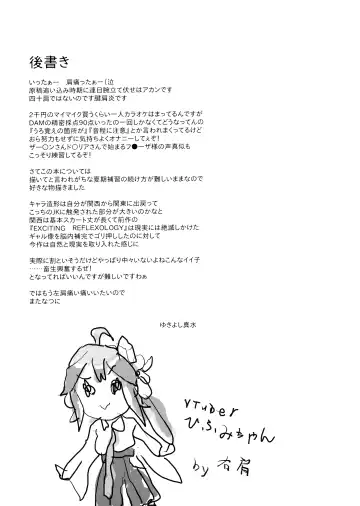 後書き
いったぁー　肩痛ったぁー（泣
原稿追い込み時期に連日腕立て伏せはアカンです
四十肩ではないのです腱肩炎です
2千円のマイマイク買うくらい一人カラオケはまってるんですが
DAMの精密採点90点いったの一回しかなくてどうなってんの
『うろ覚えの箇所が』『音程に注意』とか言われまくってるけど
おら努力もせずに気持ちよくオナニーしてぇぞ！
ザー〇ンさんド〇リアさんで始まるフ●ーザ様の声真似も
こっそり練習してるぞ！
さてこの本については
描いてと言われがちな夏期補習の続け方が難しいままなので
好きな物描きました
キャラ造形は自分が関西から関東に出戻って
こっちのJKに触発された部分が大きいのかなと
関西は基本スカート丈が長くて前作の
『EXCITING REFLEXOLOGY』は現実には絶滅しかけた
ギャル像を脳内補完でゴリ押ししたのに対して
今作は自然と現実を取り入れた感じに
実際に割といそうだけどやっぱり中々いないよねこんなイイ子
……畜生興奮するぜ！
となっていればいいんですが難しいですわぁ
ではもう左肩痛い痛いいたいので
またなつに
ゆきよし真水
VTuber
ぴ.ら.みちゃん
by 右肩